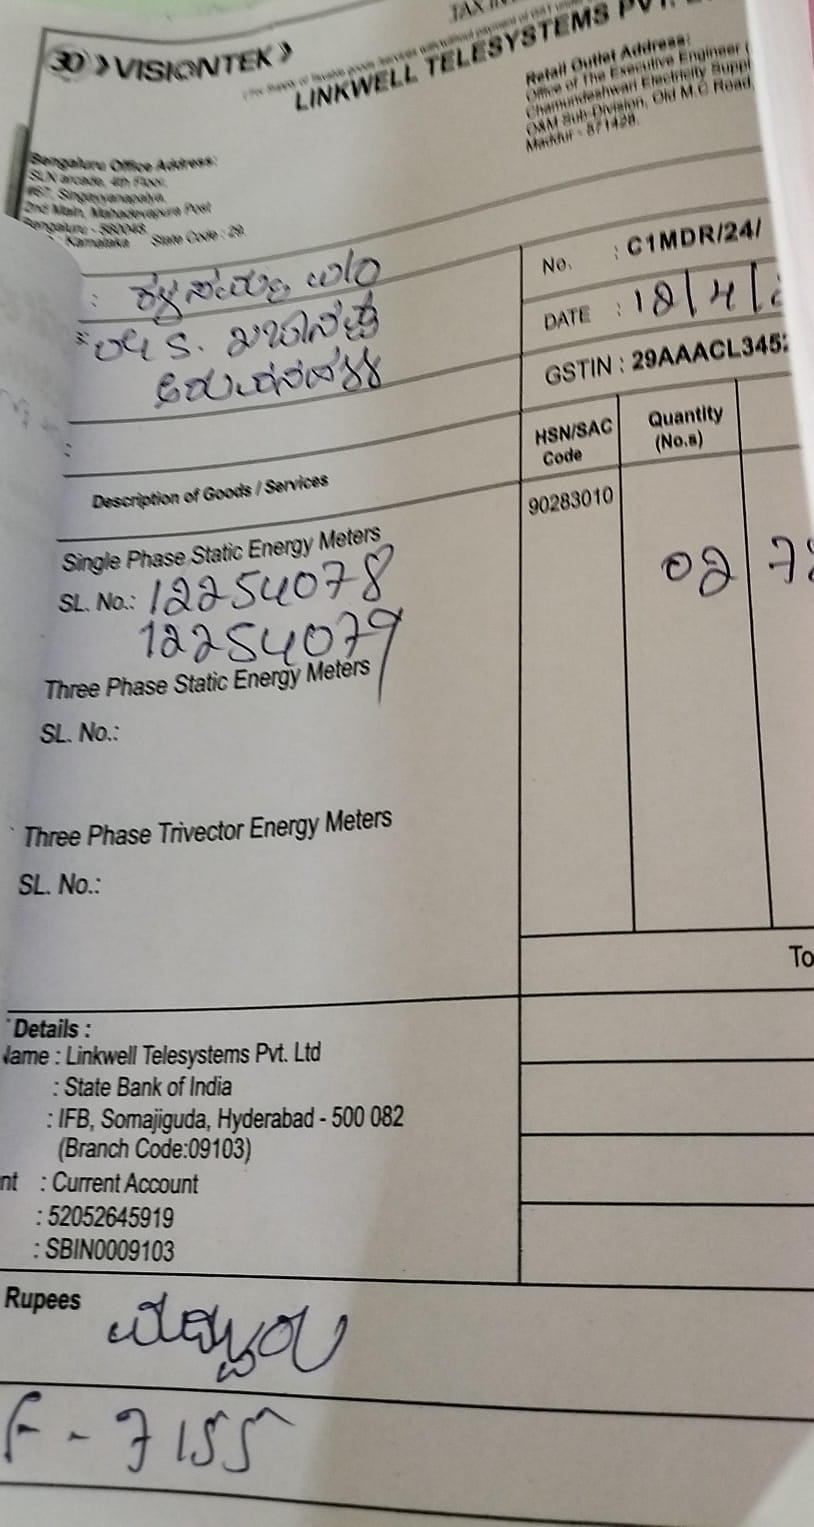 TAX IN
VISIONTEK
LINKWELL TELESYSTEMS PVT.
Retail Outlet Address:
Office of The Executive Engineer (
Chamundeshwari Electricity Suppl
O&M Sub-Division, Old M.C Road,
Maddur - 571428.
Bengaluru Office Address:
SLN arcade, 4th Floor,
#67, Singayyanapalya,
2nd Main, Mahadevapura Post
Bengaluru - 560048.
Karnataka State Code : 29.
No. : C1MDR/24/
DATE : 18/4/2
GSTIN : 29AAACL3452
Description of Goods / Services
HSN/SAC Code
Quantity (No.s)
Single Phase Static Energy Meters
90283010
02
SL. No.: 12254078
12254079
Three Phase Static Energy Meters
SL. No.:
Three Phase Trivector Energy Meters
SL. No.:
To
Details :
Name : Linkwell Telesystems Pvt. Ltd
: State Bank of India
: IFB, Somajiguda, Hyderabad - 500 082
(Branch Code:09103)
nt : Current Account
: 52052645919
: SBIN0009103
Rupees
F - 7155